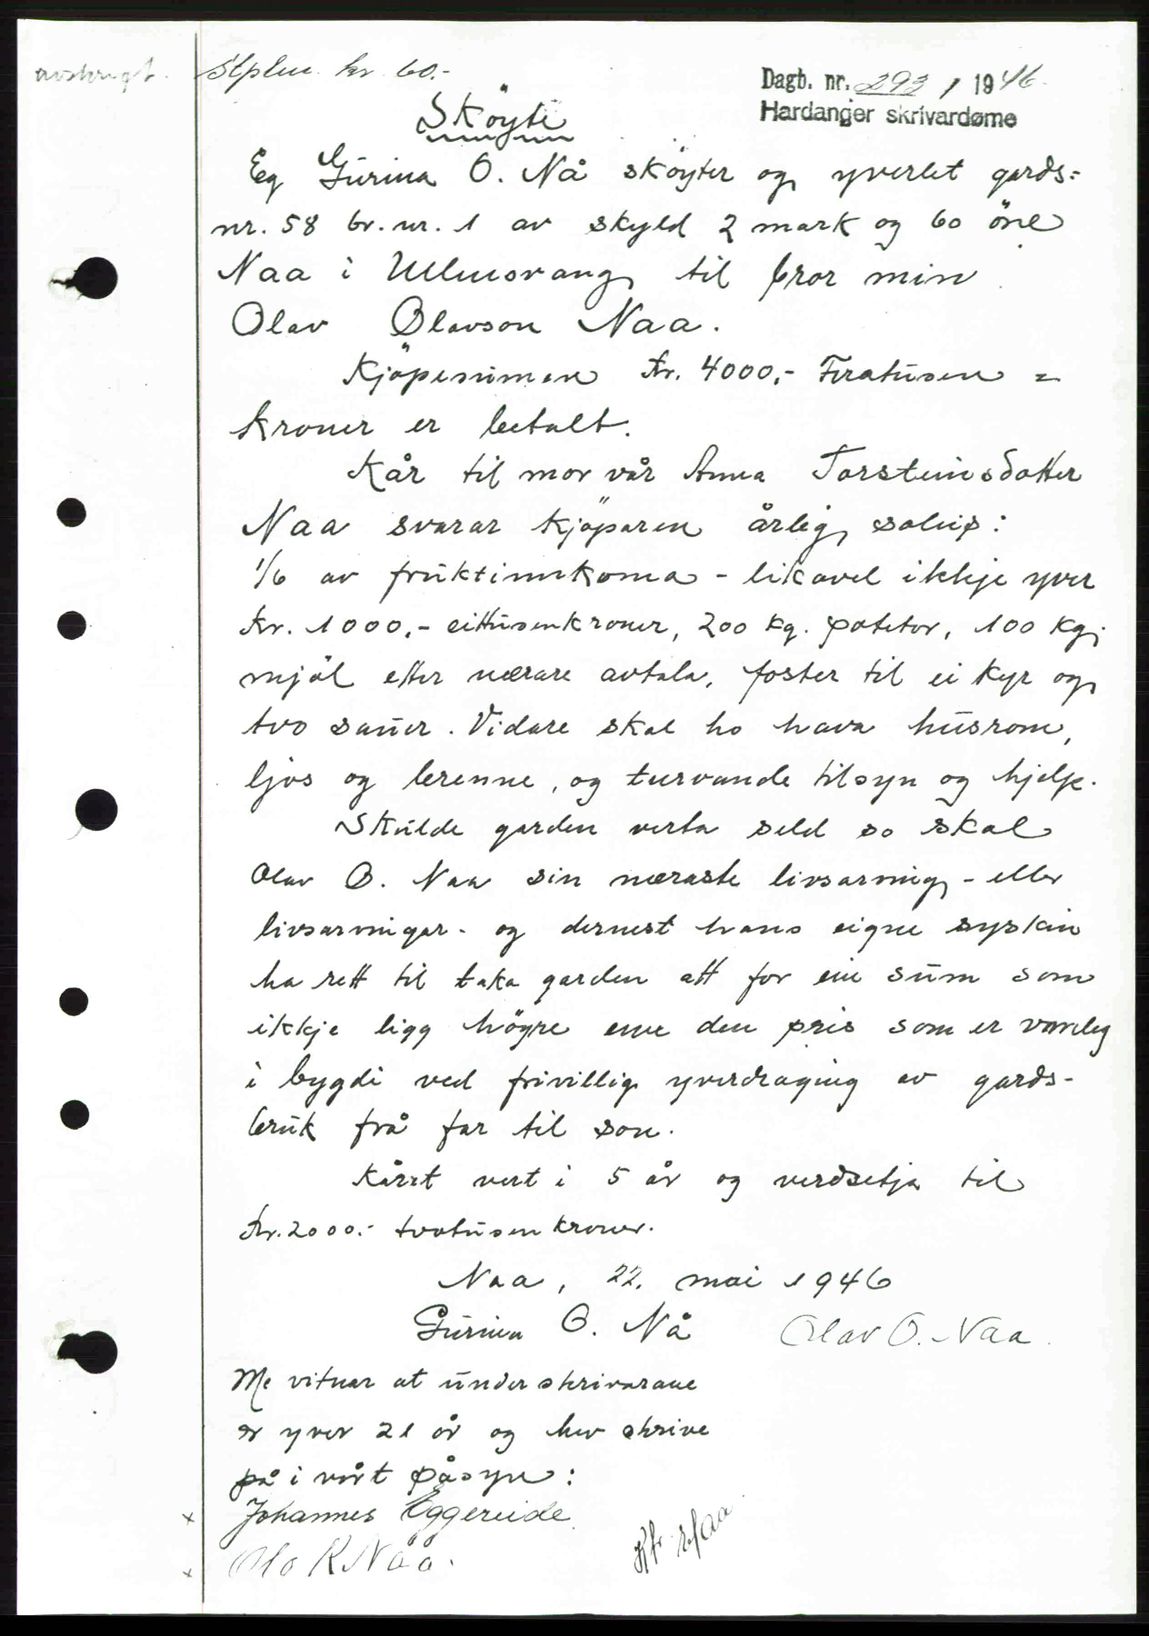 avskrive.
Stplm. kr. 60.-
Dagb. nr. 293 / 1946
Hardanger skrivardøme
Sköyte
Eg Gürina O. Nå sköyter og yverlet gards=
nr. 58 br. nr. 1 av skyld 2 mark og 60 öre
Naa i Ullensvang til bror min
Olav Olavson Naa.
Kjöpesumen Kr. 4000,- Firatusen =
kroner er betalt.
Kår til mor vår Anna Torsteinsdotter
Naa svarar kjöparen årleg soleis:
1/6 av fruktinnkoma - likavel ikkje yver
Kr. 1000,- eittusenkroner, 200 kg. poteter, 100 kg.
mjöl etter nærare avtala, foster til ei kyr og
tvo sauer. Vidare skal ho hava husrom,
ljos og brenne, og turvande tilsyn og hjelp.
Skulde garden verta seld so skal
Olav O. Naa sin næraste livsarving - eller
livsarvingar - og dernest hans eigne syskin
ha rett til taka garden att for ein sum som
ikkje ligg högre enn den pris som er vanleg
i bygdi ved frivillig yverdraging av gards-
bruk frå far til son.
Kåret vert i 5 år og verdsetja til
Kr. 2000.- tvotusen kroner.
Naa, 22. mai 1946
Gürina O. Nå Olav O. Naa.
Me vitnar at underskrivarane
er yver 21 år og hev skrive
på i vårt påsyn:
x Johannes Eggereide
x Olo R Nåå.
Kr. Naa